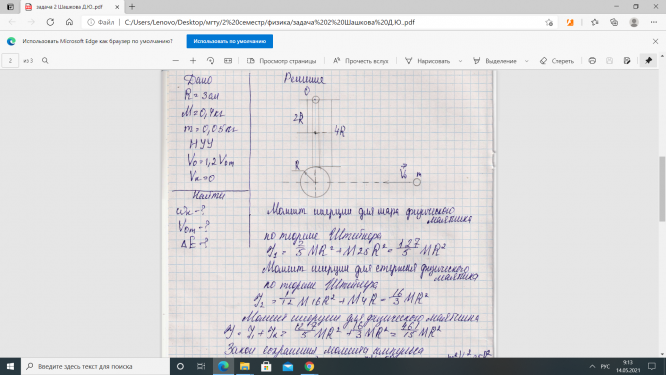 задача 2 Шашкова Д.Ю..pdf
C:/Users/Lenovo/Desktop/мгту/2%20семестр/физика/задача%202%20Шашкова%20Д.Ю..pdf
Использовать Microsoft Edge как браузер по умолчанию?
Использовать по умолчанию
2
из 3
Просмотр страницы
Прочесть вслух
Нарисовать
Выделение
Стереть
Дано
R = 3см
M = 0,4кг
m = 0,05кг
НУУ
V₀ = 1,2 V₀m
Vк = 0
Найти
ωк - ?
V₀m - ?
ΔE - ?
Решение
O
2R
4R
R
V₀ m
Момент инерции для шара физического маятника
по теореме Штейнера
J₁ = 2/5 MR² + M25R² = 127/5 MR²
Момент инерции для стержня физического маятника
по теореме Штейнера
J₂ = 1/12 M16R² + M4R = 16/3 MR²
Момент инерции для физического маятника
Закон сохранения момента импульса
Введите здесь текст для поиска
РУС
9:13
14.05.2021